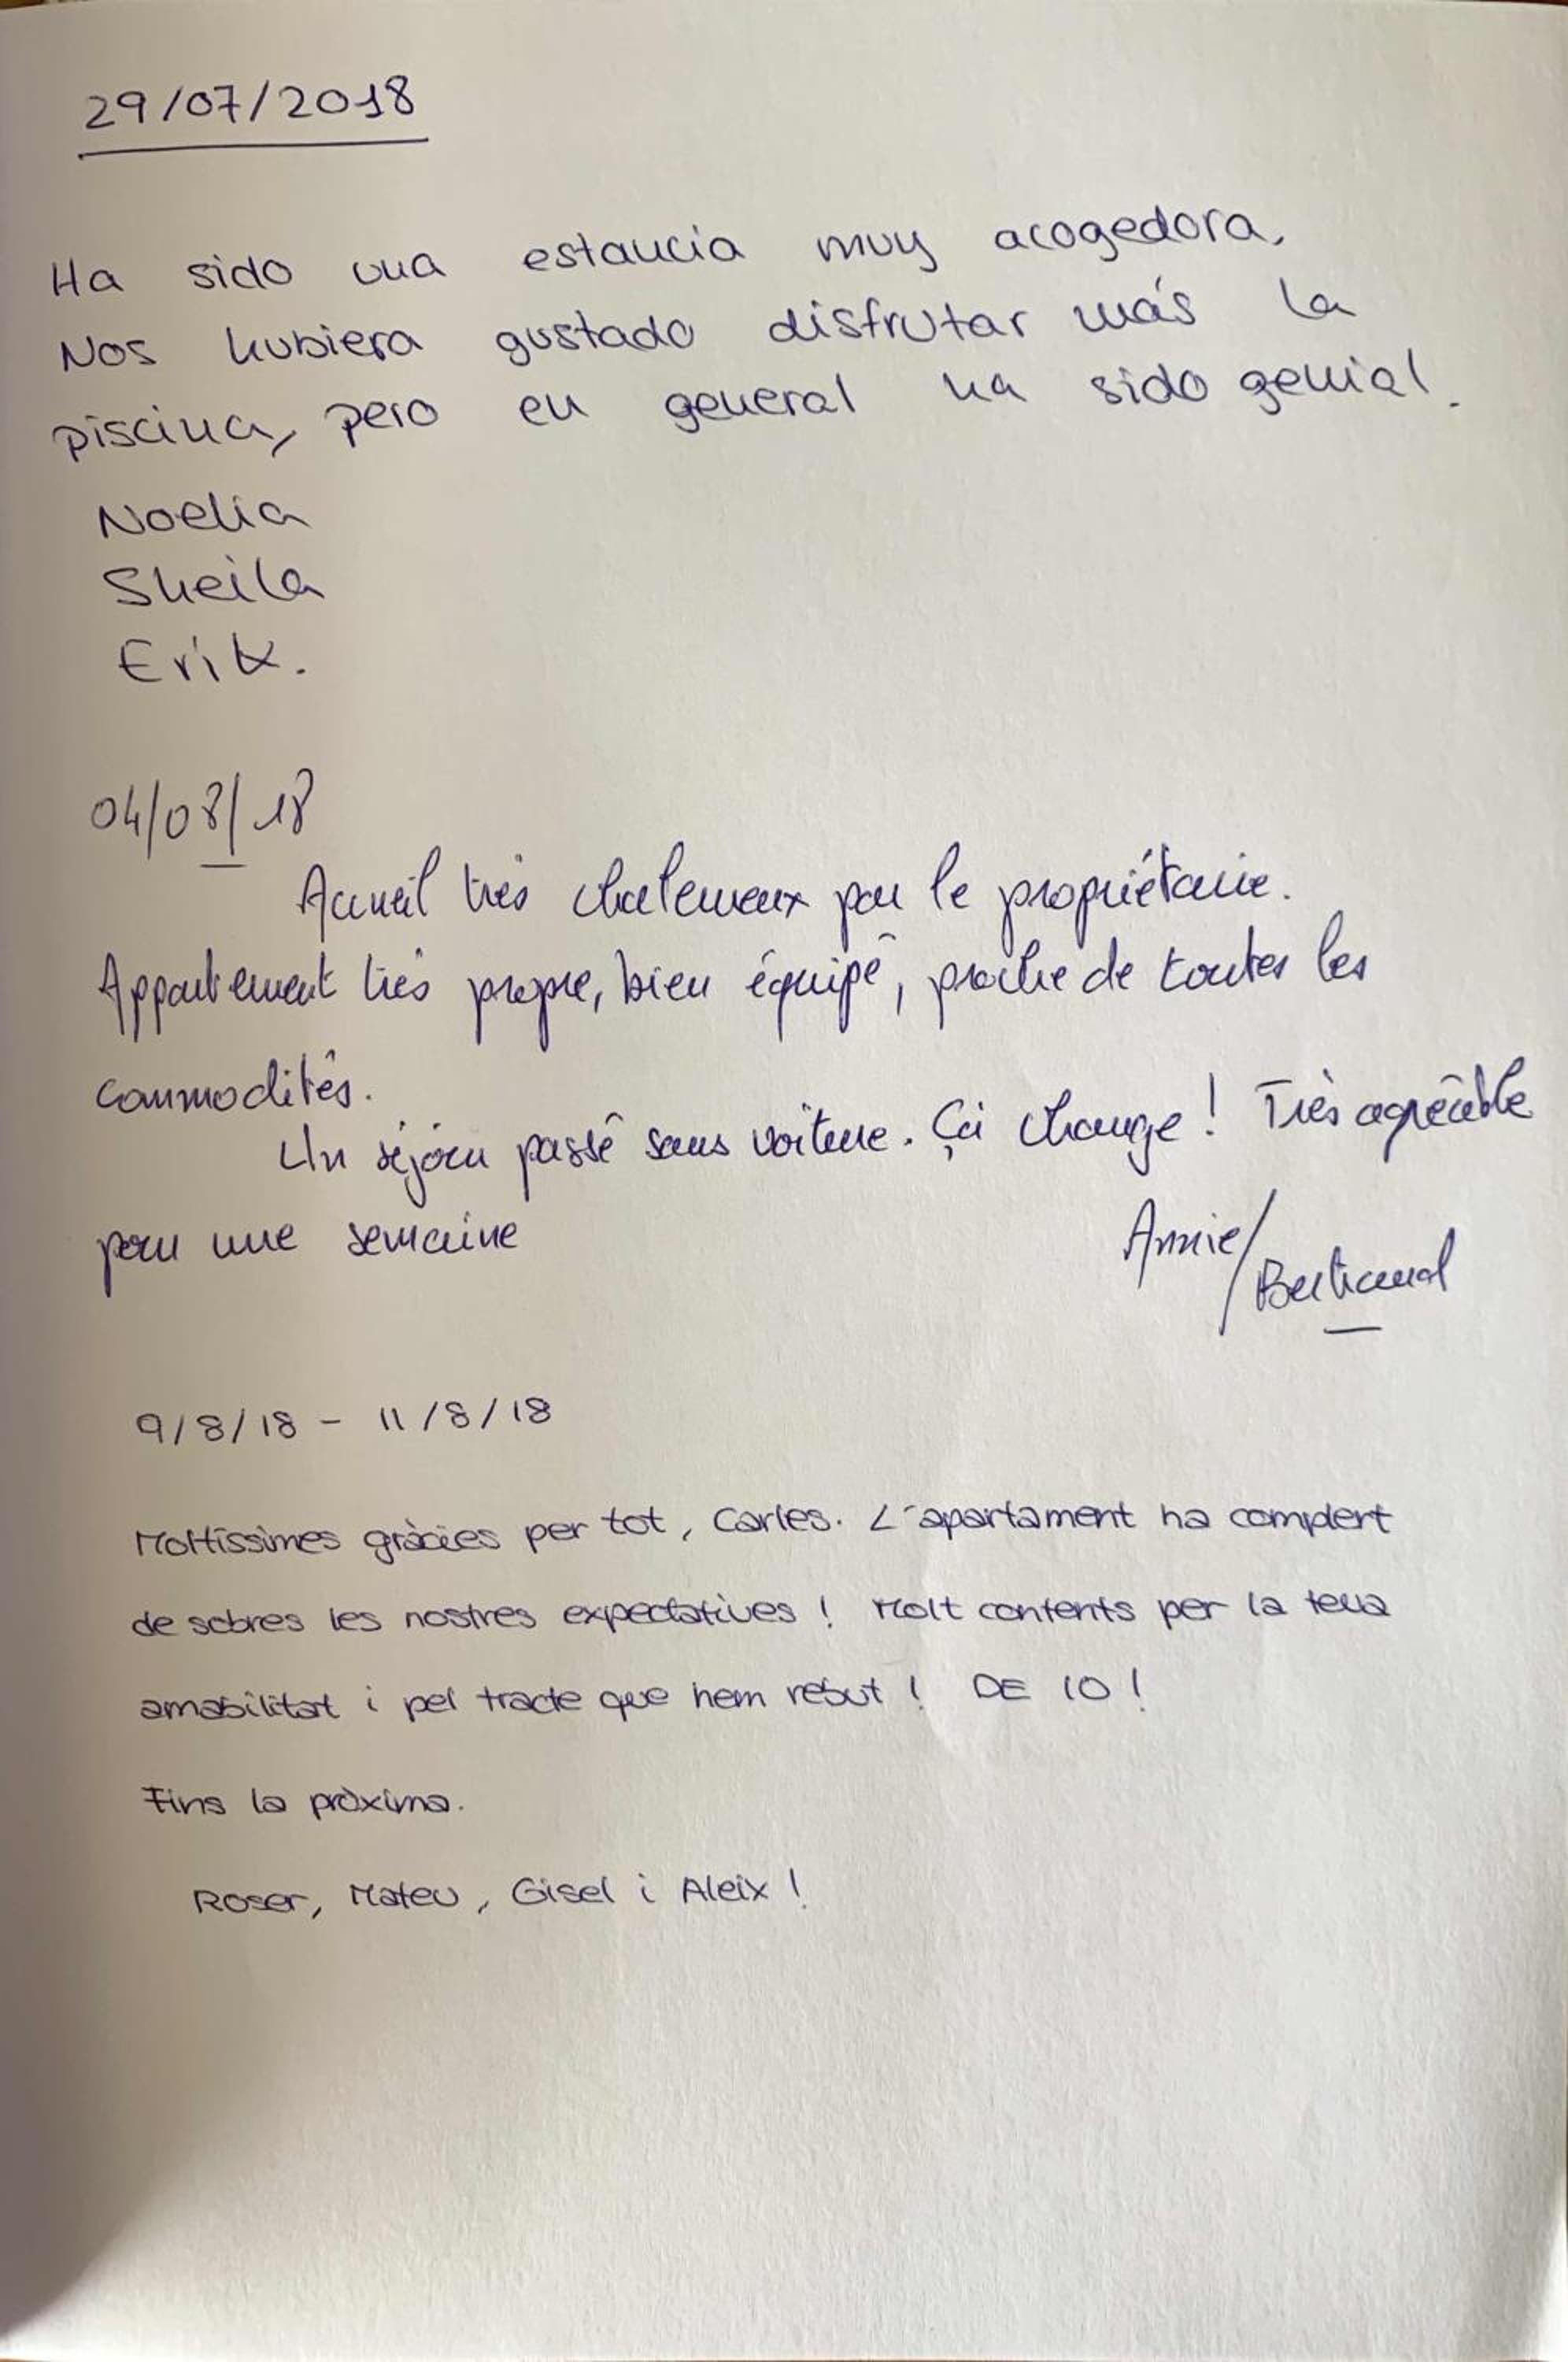 29/07/2018
Ha sido una estancia muy acogedora.
Nos hubiera gustado disfrutar más la
piscina, pero en general ha sido genial.
Noelia
Sheila
Erik.
04/08/18
Accueil très chaleureux par le propriétaire.
Appartement très propre, bien équipé, proche de toutes les
commodités.
Un séjour passé sans voiture. Çà change ! Très agréable
pour une semaine
Annie/
Bertrand
9/8/18 - 11/8/18
Moltíssimes gràcies per tot, Carles. L'apartament ha complert
de sobres les nostres expectatives ! Molt contents per la teua
amabilitat i pel tracte que hem rebut ! DE 10 !
Fins la pròxima.
Roser, Mateu, Gisel i Aleix !